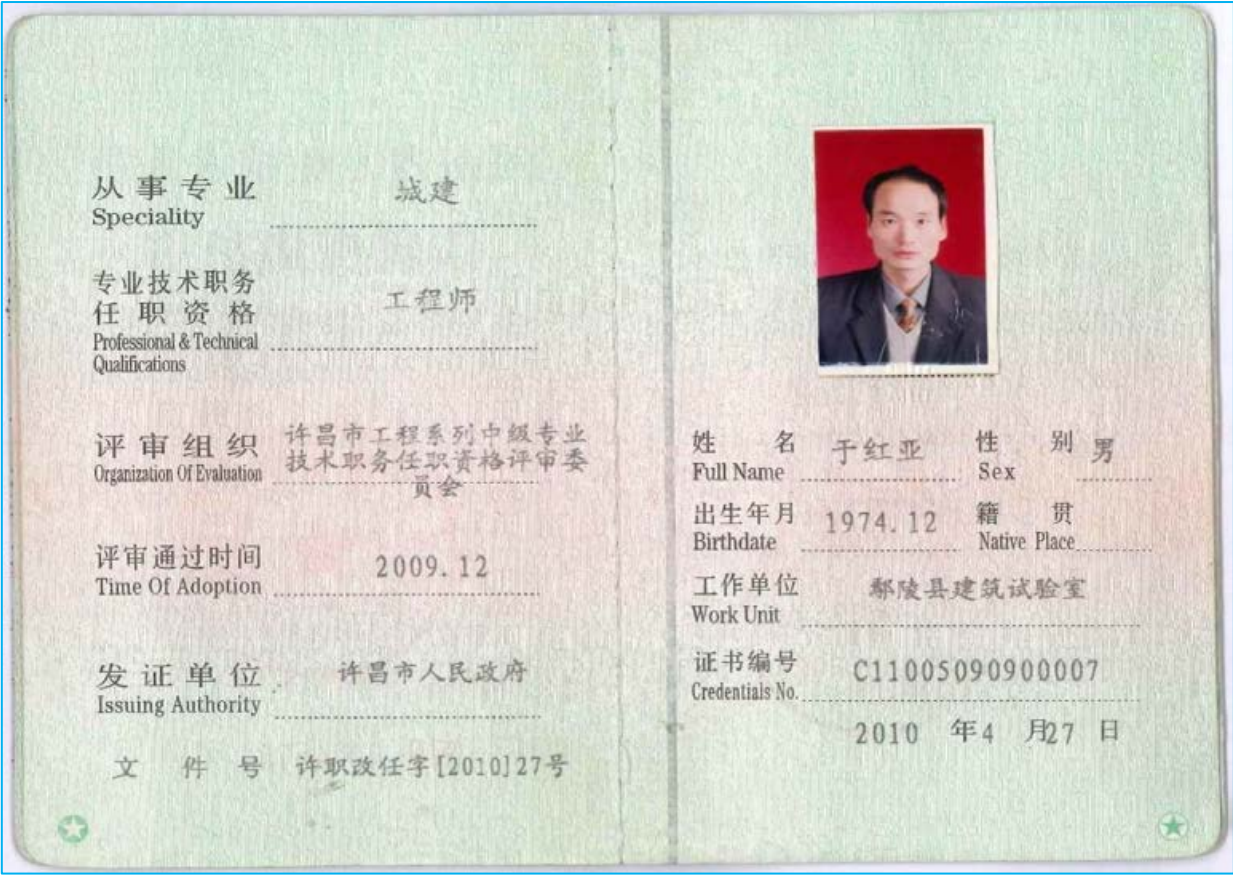 从事专业 城建
Speciality
专业技术职务
任职资格 工程师
Professional & Technical
Qualifications
评审组织 许昌市工程系列中级专业
技术职务任职资格评审委
员会
Organization Of Evaluation
评审通过时间 2009.12
Time Of Adoption
发证单位 许昌市人民政府
Issuing Authority
文件号 许职改任字[2010]27号
姓名 于红亚 性别 男
Full Name Sex
出生年月 1974.12 籍贯
Birthdate Native Place
工作单位 鄢陵县建筑试验室
Work Unit
证书编号 C11005090900007
Credentials No.
2010 年4 月27 日